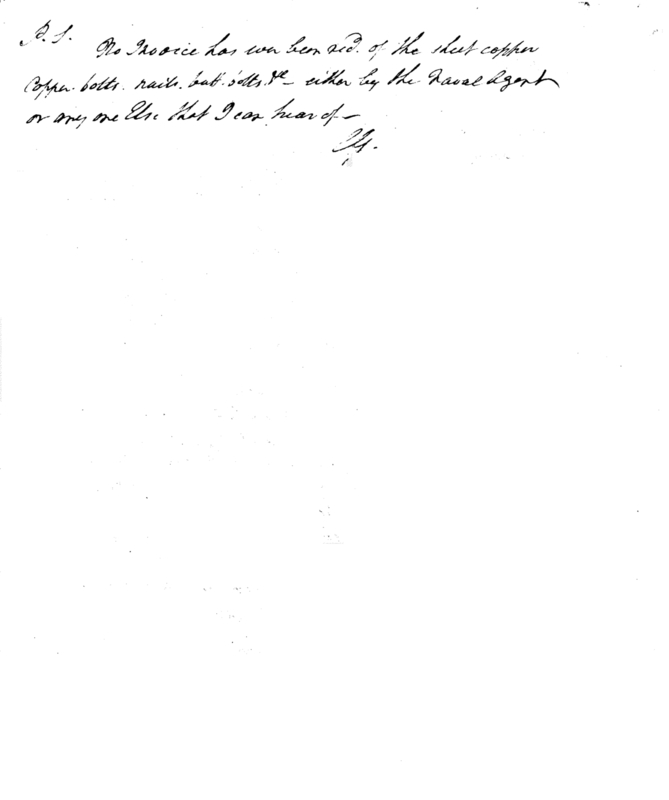 P.S.
No Invoice has ever been recd. of the sheet copper
Copper bolts. nails. but bolts. &c - either by the Naval Agent
or any one Else that I can hear of -